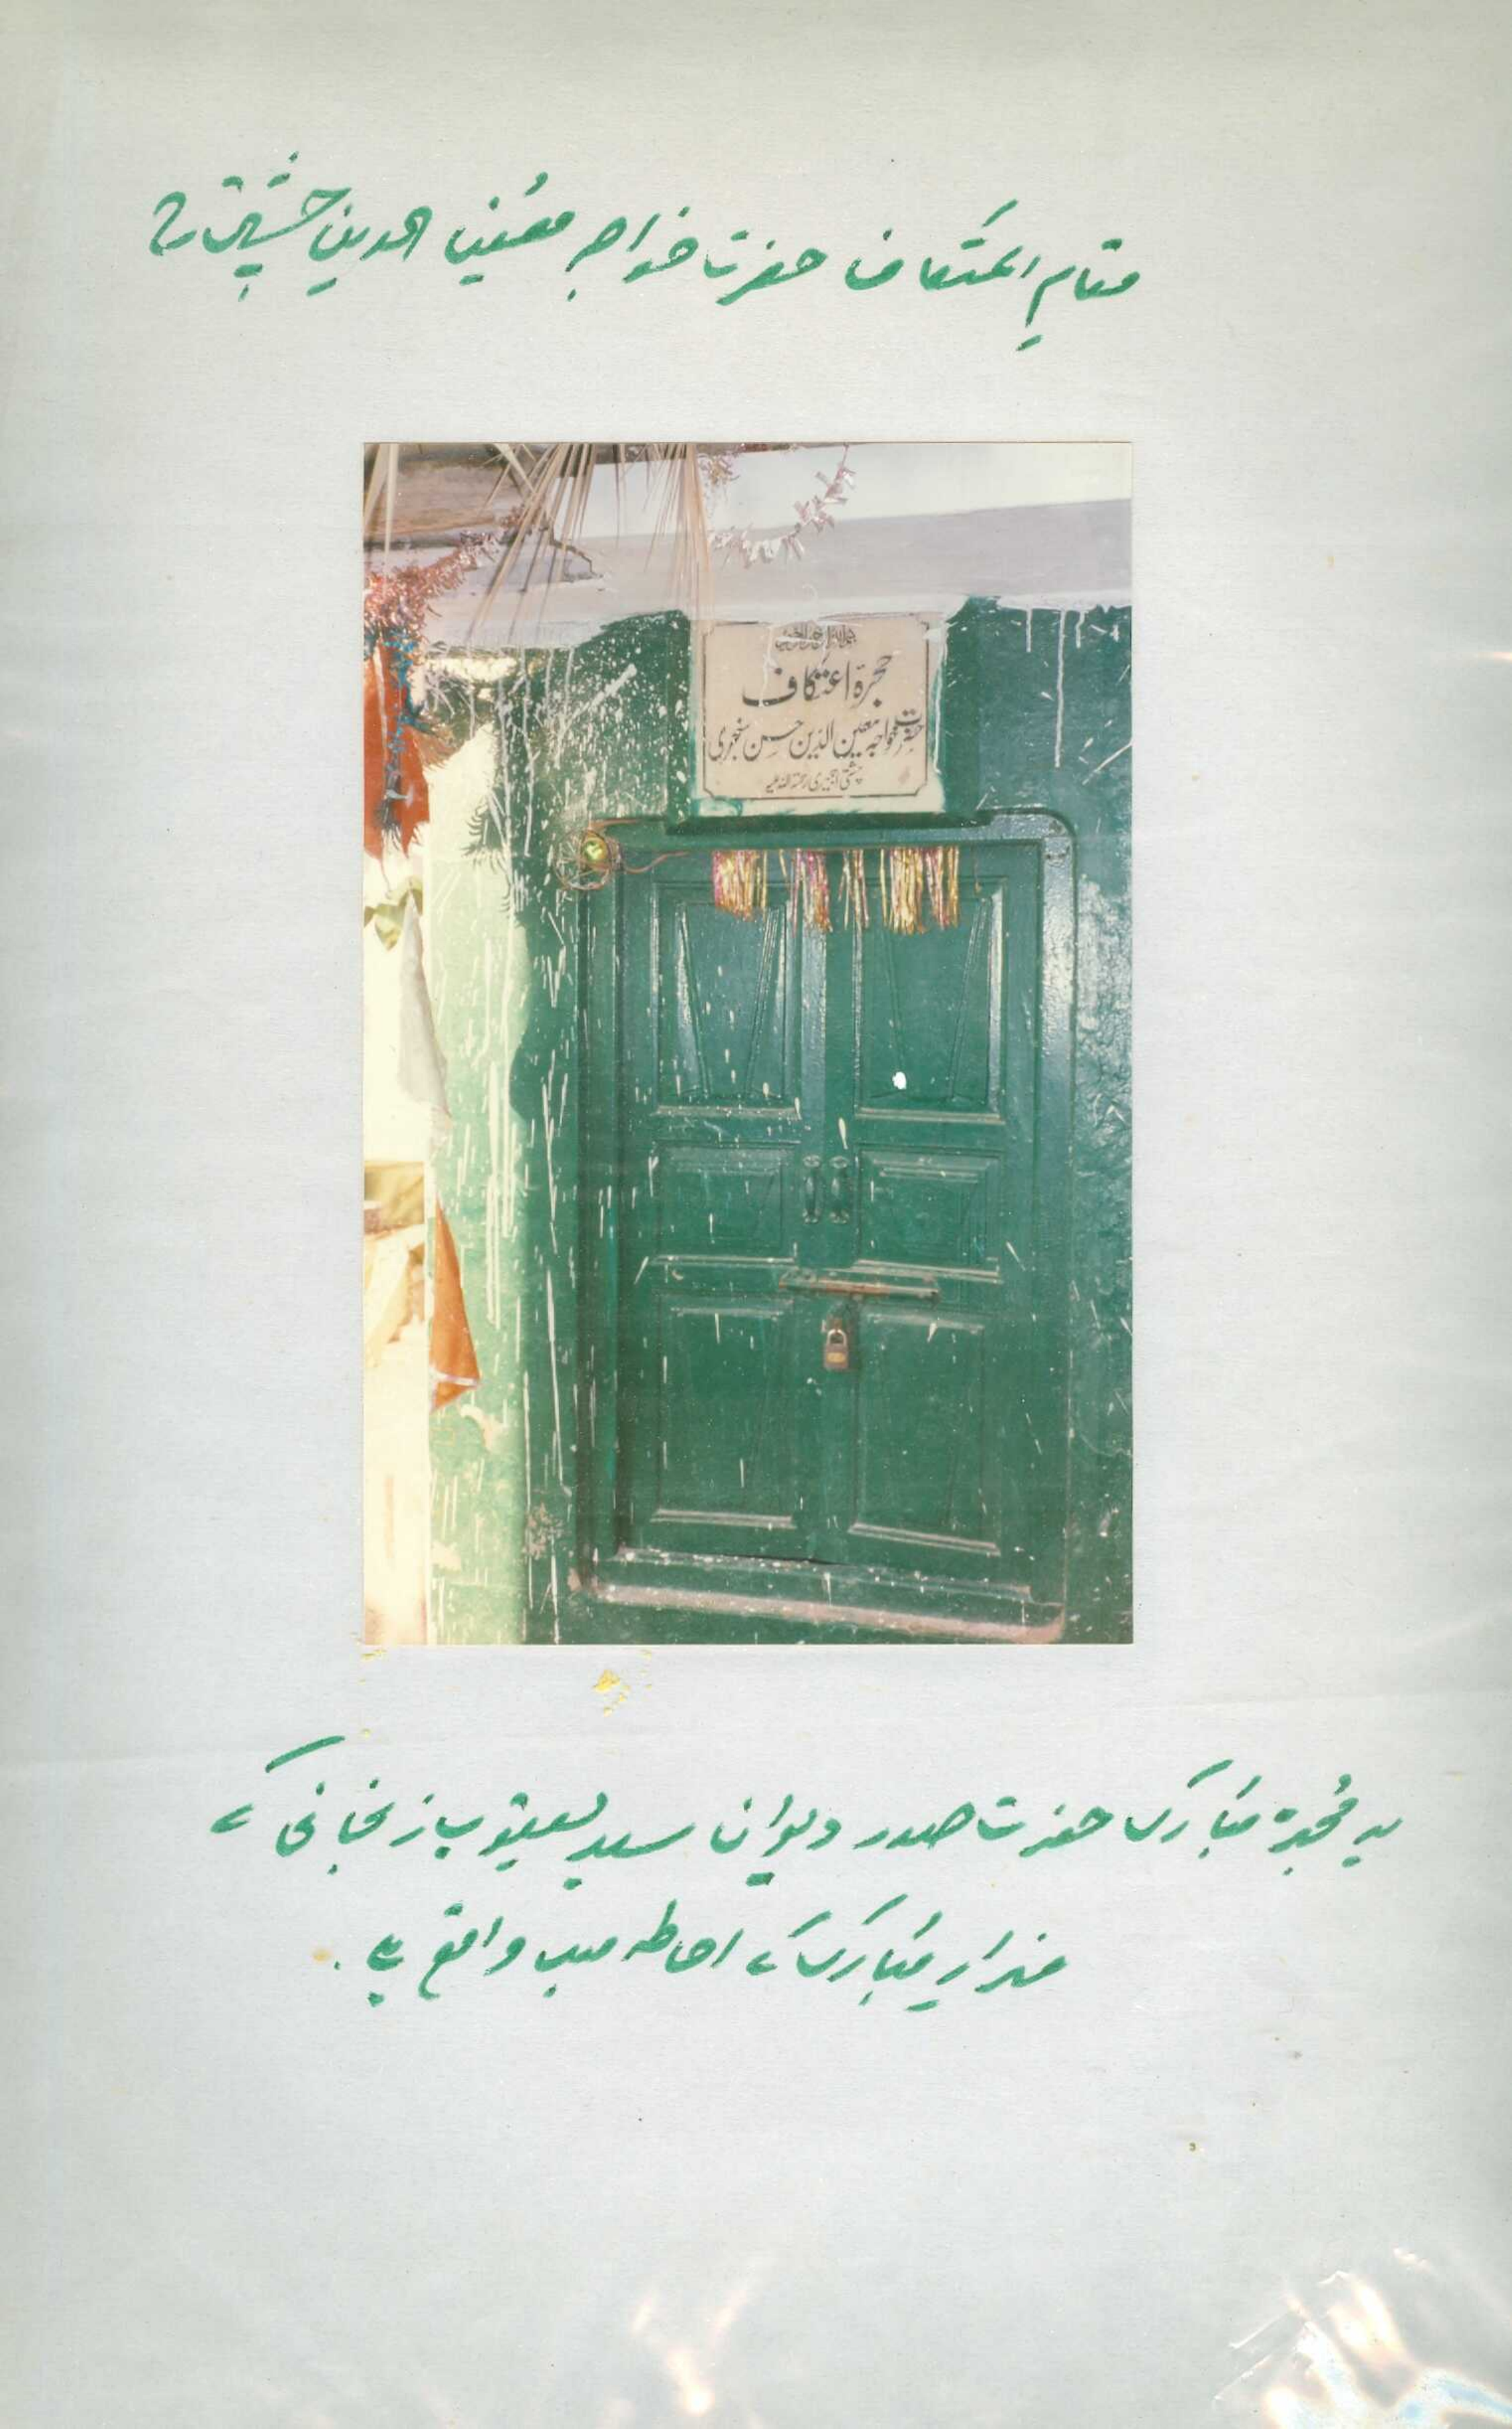 مقامِ اعتکاف حضرت خواجہ معین الدین چشتیؒ
بسم اللہ الرحمن الرحیم
حجرۂ اعتکاف
حضرت خواجہ معین الدین حسن سنجری
چشتی اجمیری رحمۃ اللہ علیہ
یہ حُجرہ مُبارک حضرت صدر دیوان سید یعقوب زنجانی کے
مزارِ مُبارک کے احاطہ میں واقع ہے .